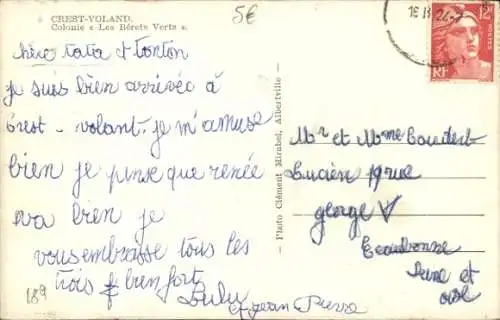 CREST-VOLAND.
Colonie « Les Bérets Verts ».
5€
12F
POSTES
RF
chère tata et tonton
je suis bien arrivée à
crest - volant. je m'amuse
bien je pense que renée
va bien je
vous embrasse tous les
trois bien fort
Lulu
et jean Pierre
189
— Photo Clément Mirabel, Albertville —
Mr et Mme
Lucien 19 rue
george V
Eaubonne
Seine et
oise